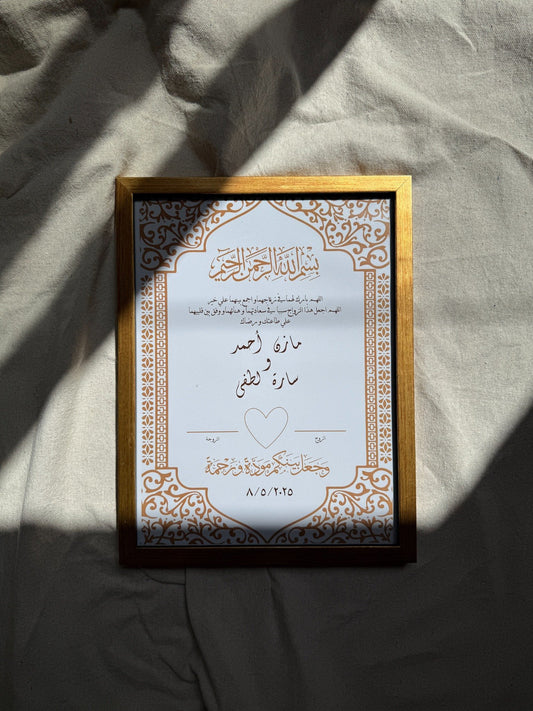 بسم الله الرحمن الرحيم
اللهم بارك لهما في زواجهما و اجمع بينهما علي خير
اللهم اجعل هذا الزواج سببا في سعادتهما و هنائهما و وفق بين قلبيهما
علي طاعتك و رضاك
مازن أحمد
و
سارة لطفى
الزوج
الزوجة
وجعل بينكم مودة ورحمة
٨/٥/٢٠٢٥